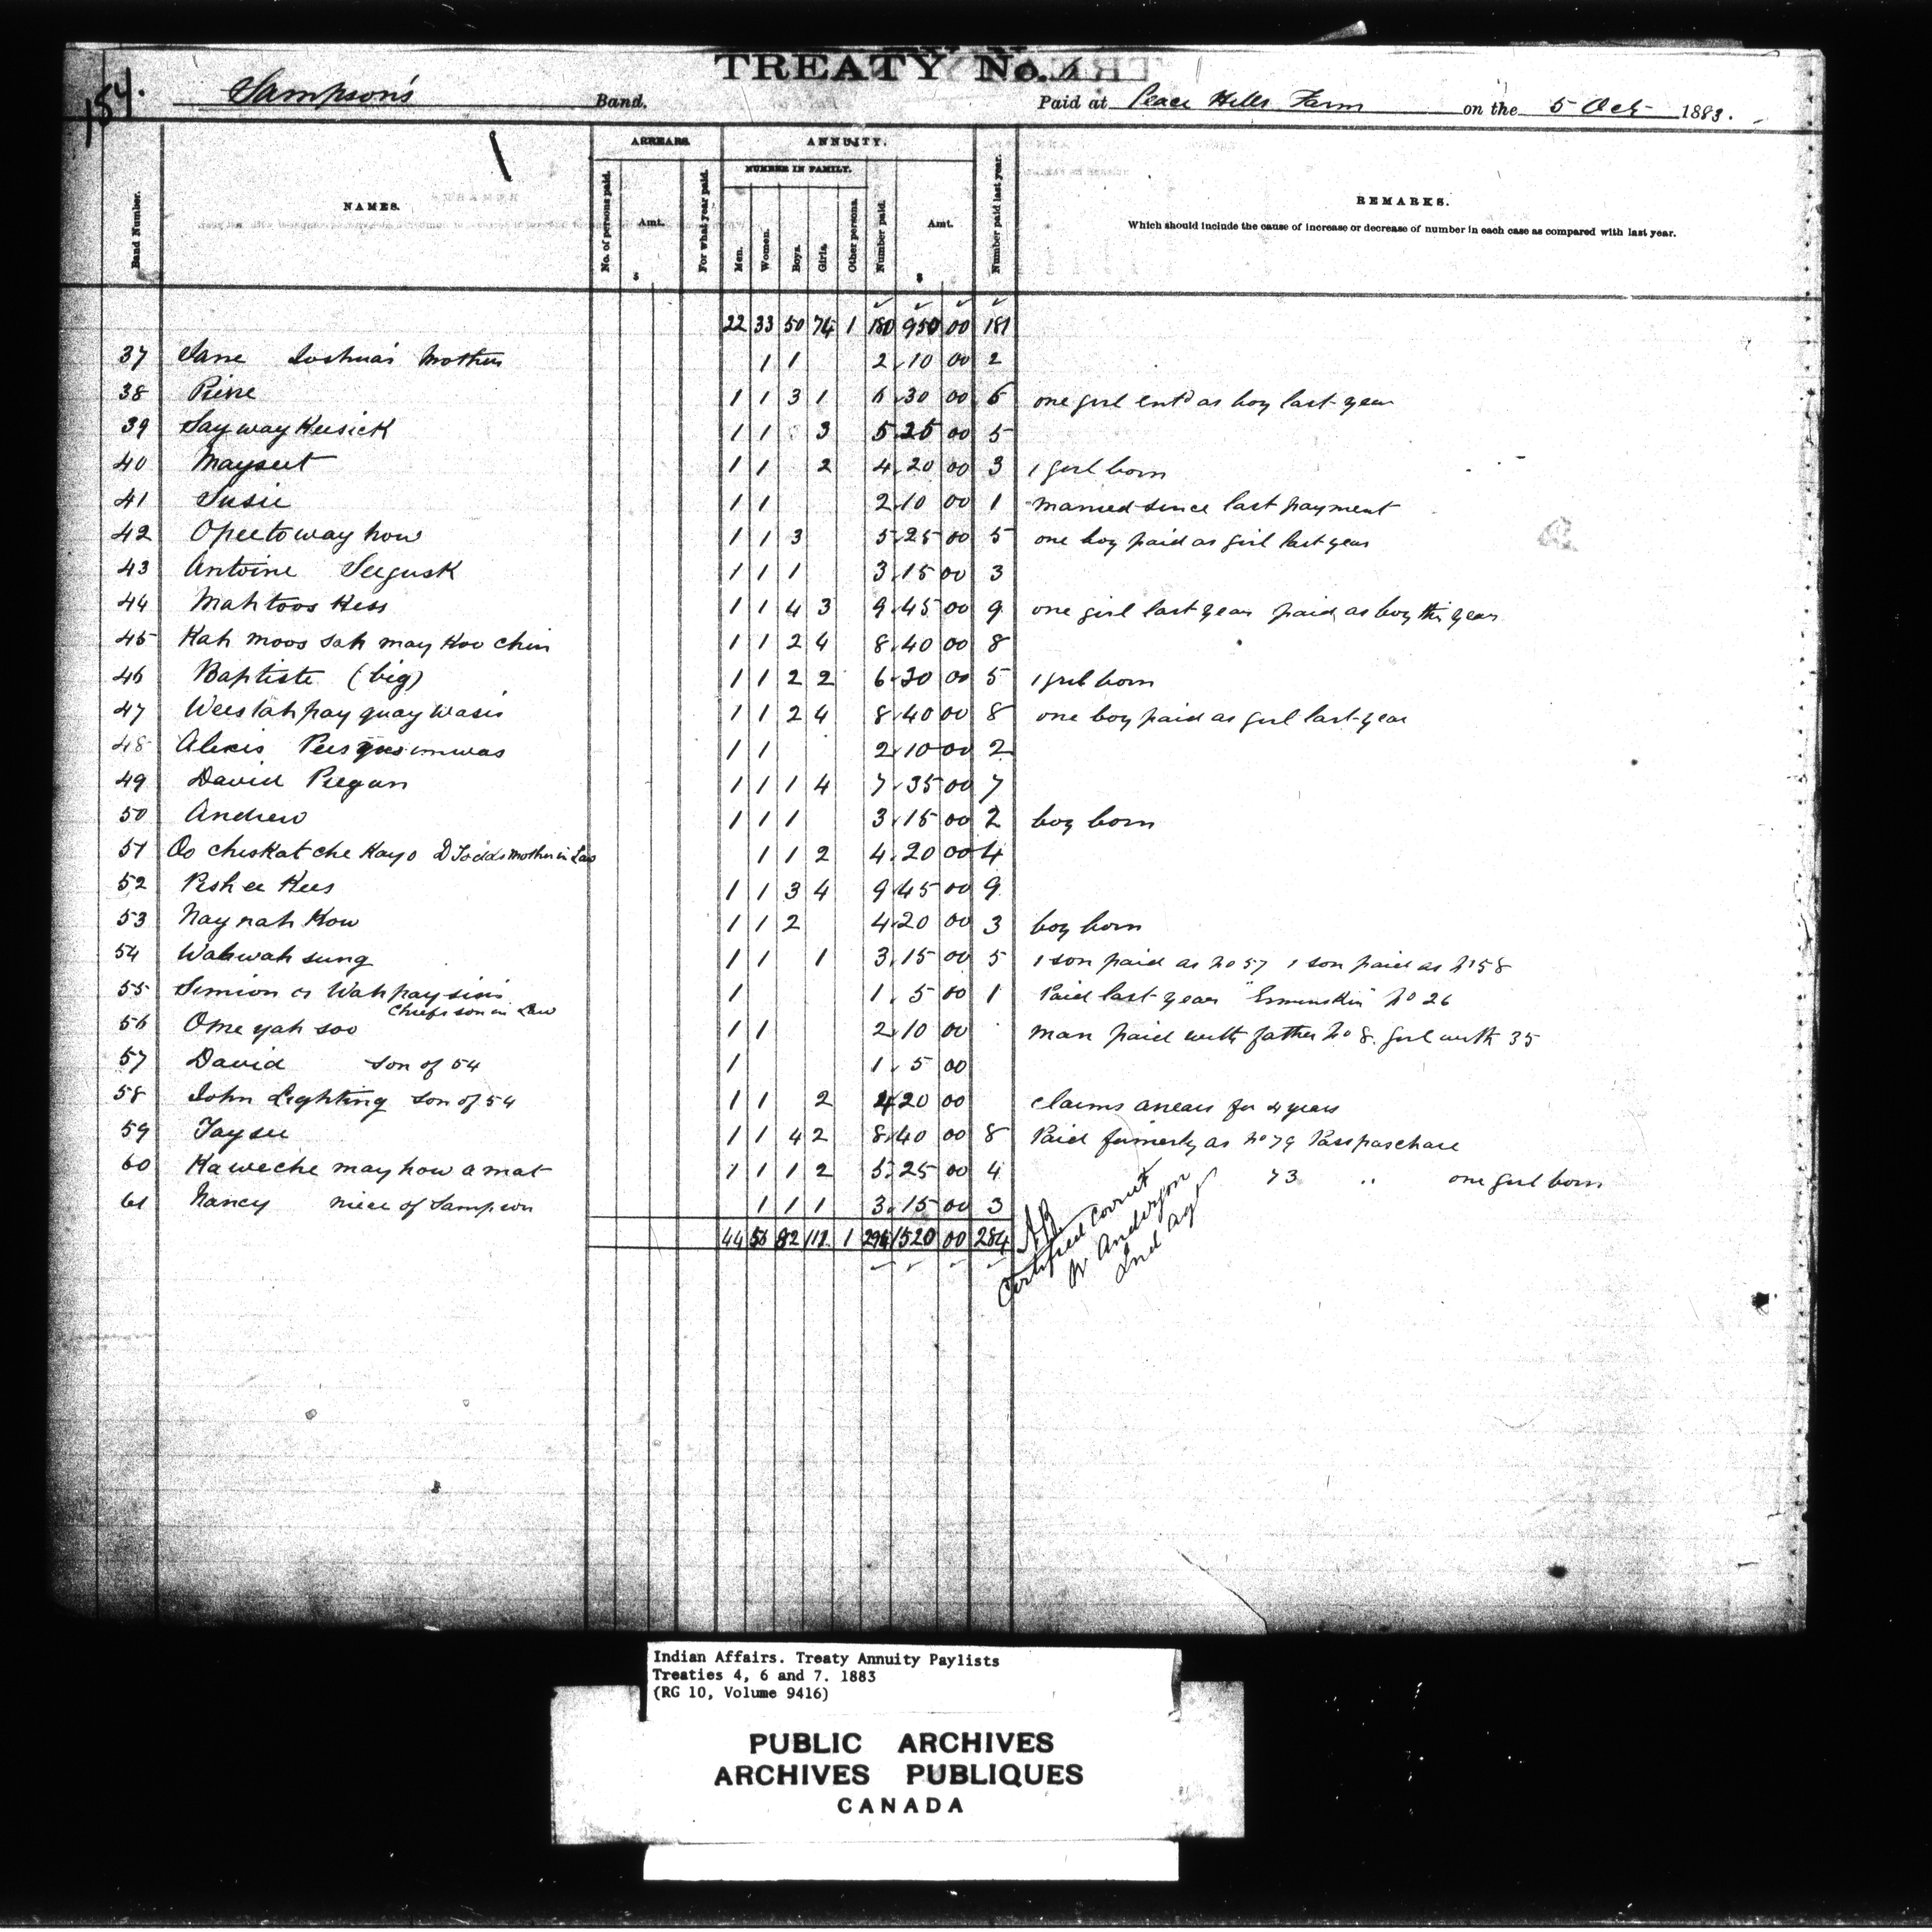 TREATY No. 6
154.
Sampson's Band. Paid at Peace Hills Farm on the 5 Oct 1883.
Band Number. NAMES. ARREARS. No. of persons paid. Amt. $ For what year paid. ANNUITY. NUMBER IN FAMILY. Men. Women. Boys. Girls. Other persons. Number paid. Amt. $ Number paid last year. REMARKS.
Which should include the cause of increase or decrease of number in each case as compared with last year.
22 33 50 74 1 180 950 00 181
37 Jane Joshua's Mother 1 1 2 10 00 2
38 1 1 3 1 6 30 00 6 one girl entd as boy last year
39 Say way Keesick 1 1 3 5 25 00 5
40 1 1 2 4 20 00 3 1 girl born
41 Susie 1 1 2 10 00 1 married since last payment
42 Opeetoway how 1 1 3 5 25 00 5 one boy paid as girl last year
43 Antoine Seegusk 1 1 1 3 15 00 3
44 Mahtoos Kess 1 1 4 3 9 45 00 9 one girl last year paid as boy this year
45 Kah moos sah may Koo chin 1 1 2 4 8 40 00 8
46 Baptiste (big) 1 1 2 2 6 30 00 5 1 girl born
47 Weestah pay quay wasis 1 1 2 4 8 40 00 8 one boy paid as girl last year
48 Alexis 1 1 2 10 00 2
49 David Peegan 1 1 1 4 7 35 00 7
50 Andrew 1 1 1 3 15 00 2 boy born
51 Oo cheskat che Kayo D Todds Mother in Law 1 1 2 4 20 00 4
52 Peshee Kees 1 1 3 4 9 45 00 9
53 Nay nah Kow 1 1 2 4 20 00 3 boy born
54 Wahwah sung 1 1 1 3 15 00 5 1 son paid as No 57 1 son paid as No 58
55 Simion or Wah pay sisis 1 1 5 00 1 Paid last year "Ermuskin" No 26
Chiefs son in Law
56 Ome yah soo 1 1 2 10 00 man paid with father No 8. girl with 35
57 David son of 54 1 1 5 00
58 John Lighting son of 54 1 1 2 4 20 00 claims arrears for 4 years
59 Taysee 1 1 4 2 8 40 00 8 Paid formerly as No 79 Passpaschase
60 Kaweche may how a mat 1 1 1 2 5 25 00 4 73 " one girl born
61 Nancy niece of Sampson 1 1 1 3 15 00 3
44 56 82 112 1 294 1520 00 284
Certified Correct
W Anderson
Ind Agt
Indian Affairs. Treaty Annuity Paylists
Treaties 4, 6 and 7. 1883
(RG 10, Volume 9416)
PUBLIC ARCHIVES
ARCHIVES PUBLIQUES
CANADA